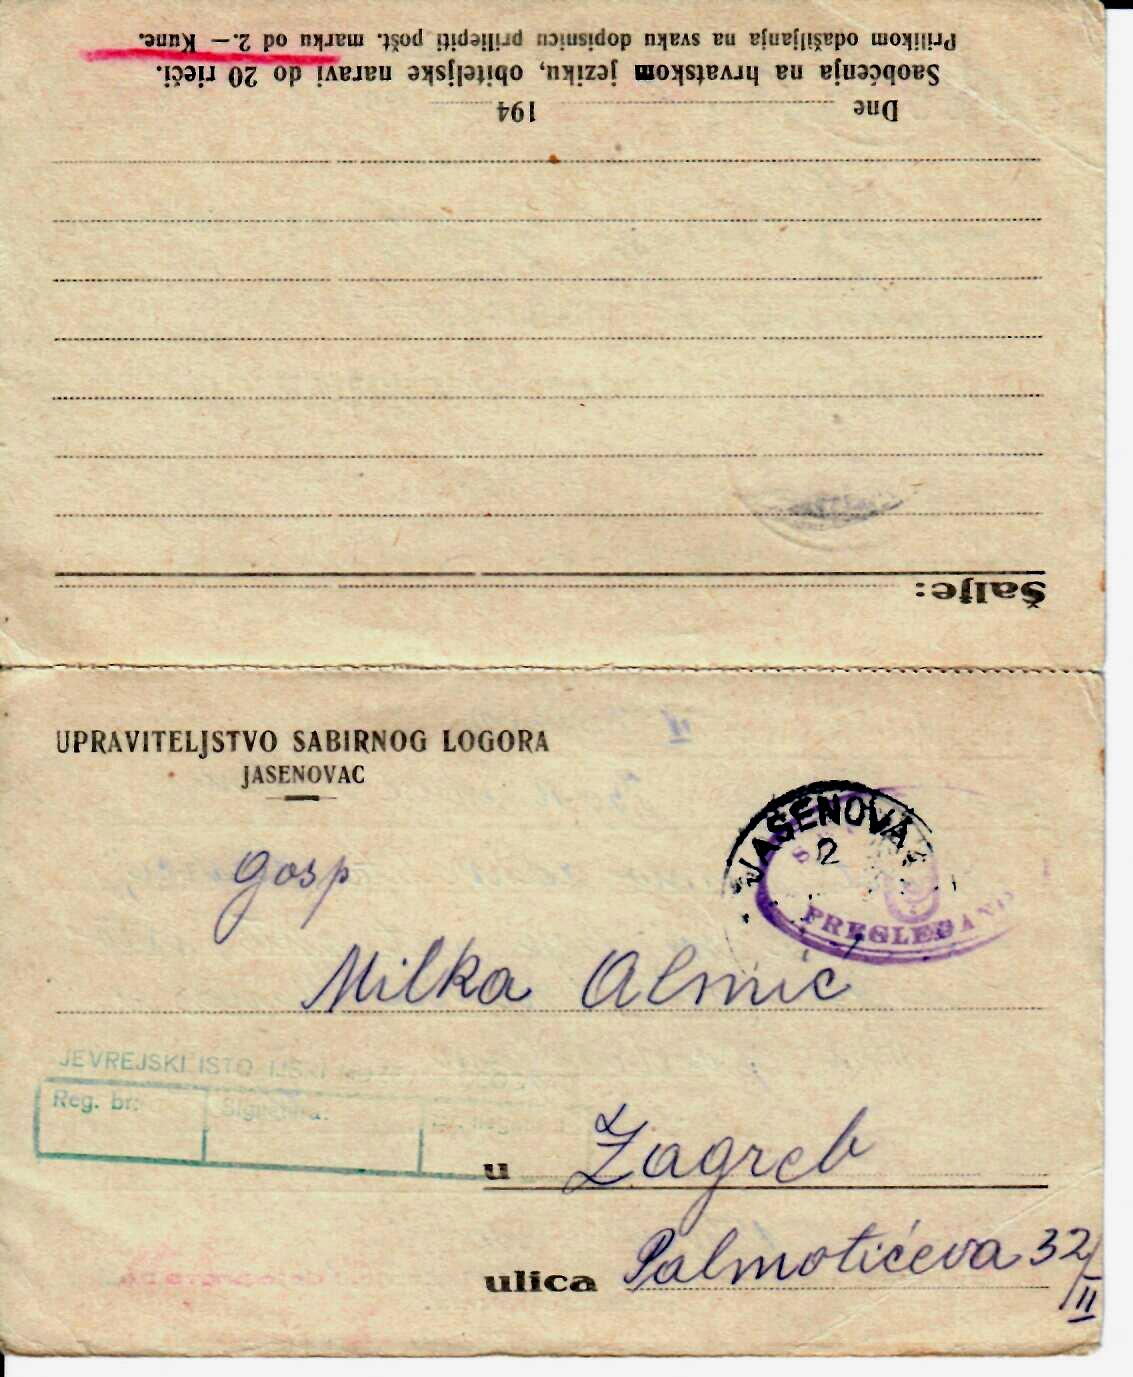 Prilikom odašiljanja na svaku dopisnicu priliepiti pošt. marku od 2.— Kune.
Saobćenja na hrvatskom jeziku, obiteljske naravi do 20 rieči.
Dne 194
Šalje:
UPRAVITELJSTVO SABIRNOG LOGORA
JASENOVAC
JASENOVA
2
PREGLEDANO
gosp
Milka Almić
JEVREJSKI ISTO
Reg. br.
u Zagreb
ulica Palmotićeva 32/II